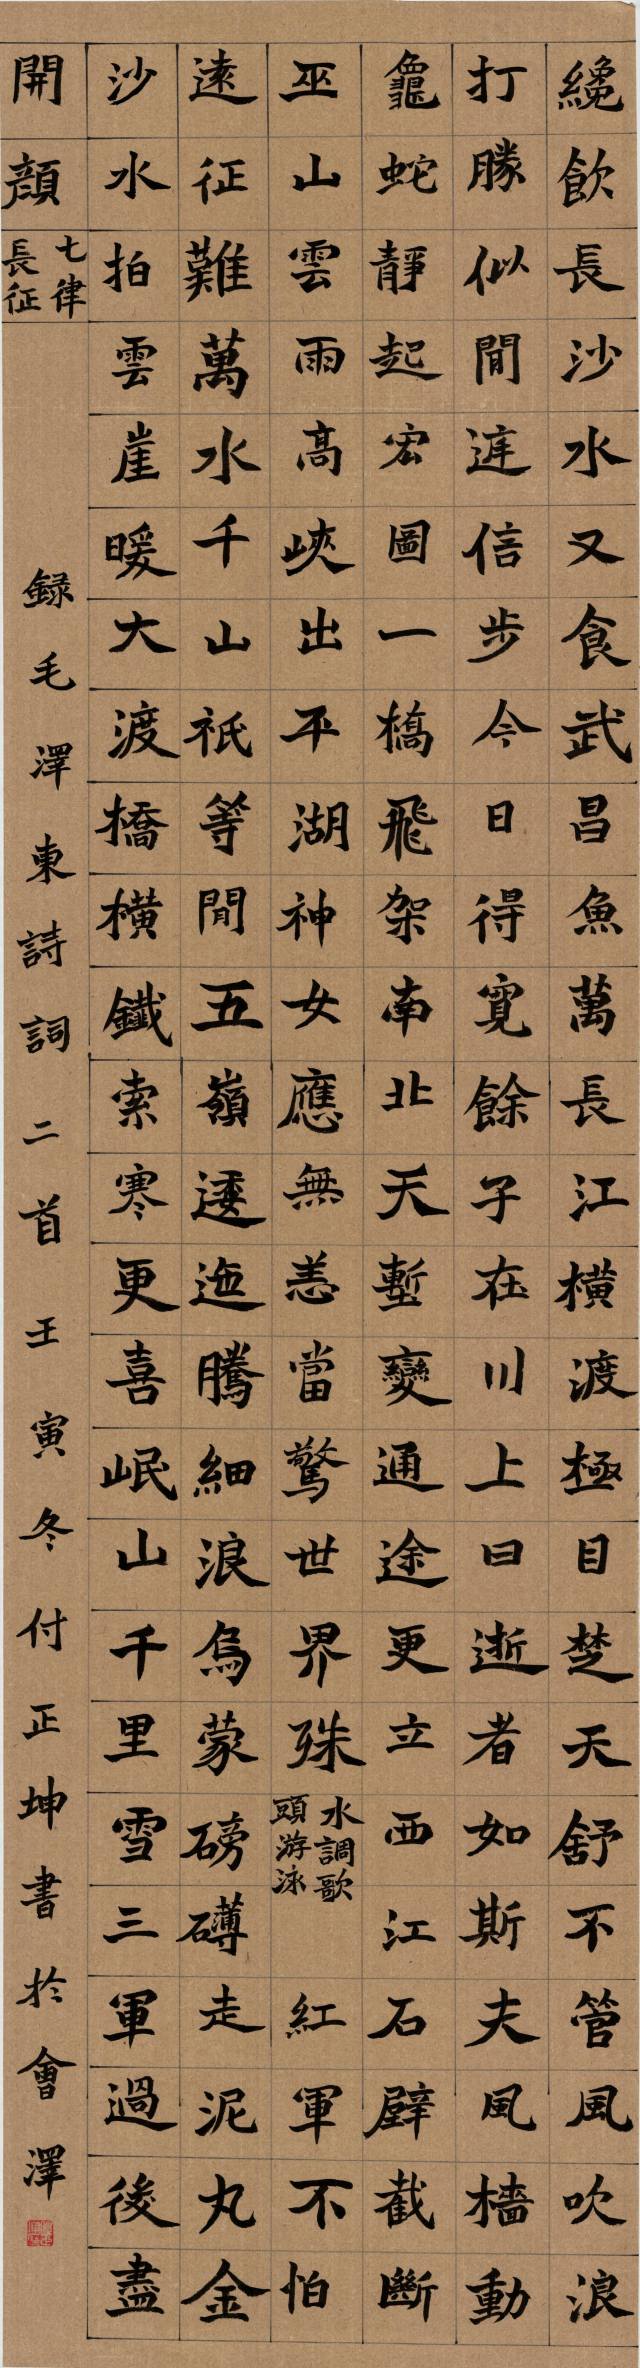 纔飲長沙水又食武昌魚萬長江橫渡極目楚天舒不管風吹浪
打勝似閒庭信步今日得寬餘子在川上曰逝者如斯夫風檣動
龜蛇靜起宏圖一橋飛架南北天塹變通途更立西江石壁截斷
巫山雲雨高峽出平湖神女應無恙當驚世界殊
水調歌
頭游泳
紅軍不怕
遠征難萬水千山祇等閒五嶺逶迤騰細浪烏蒙磅礴走泥丸金
沙水拍雲崖暖大渡橋橫鐵索寒更喜岷山千里雪三軍過後盡
開顏
七律
長征
録毛澤東詩詞二首壬寅冬付正坤書於會澤